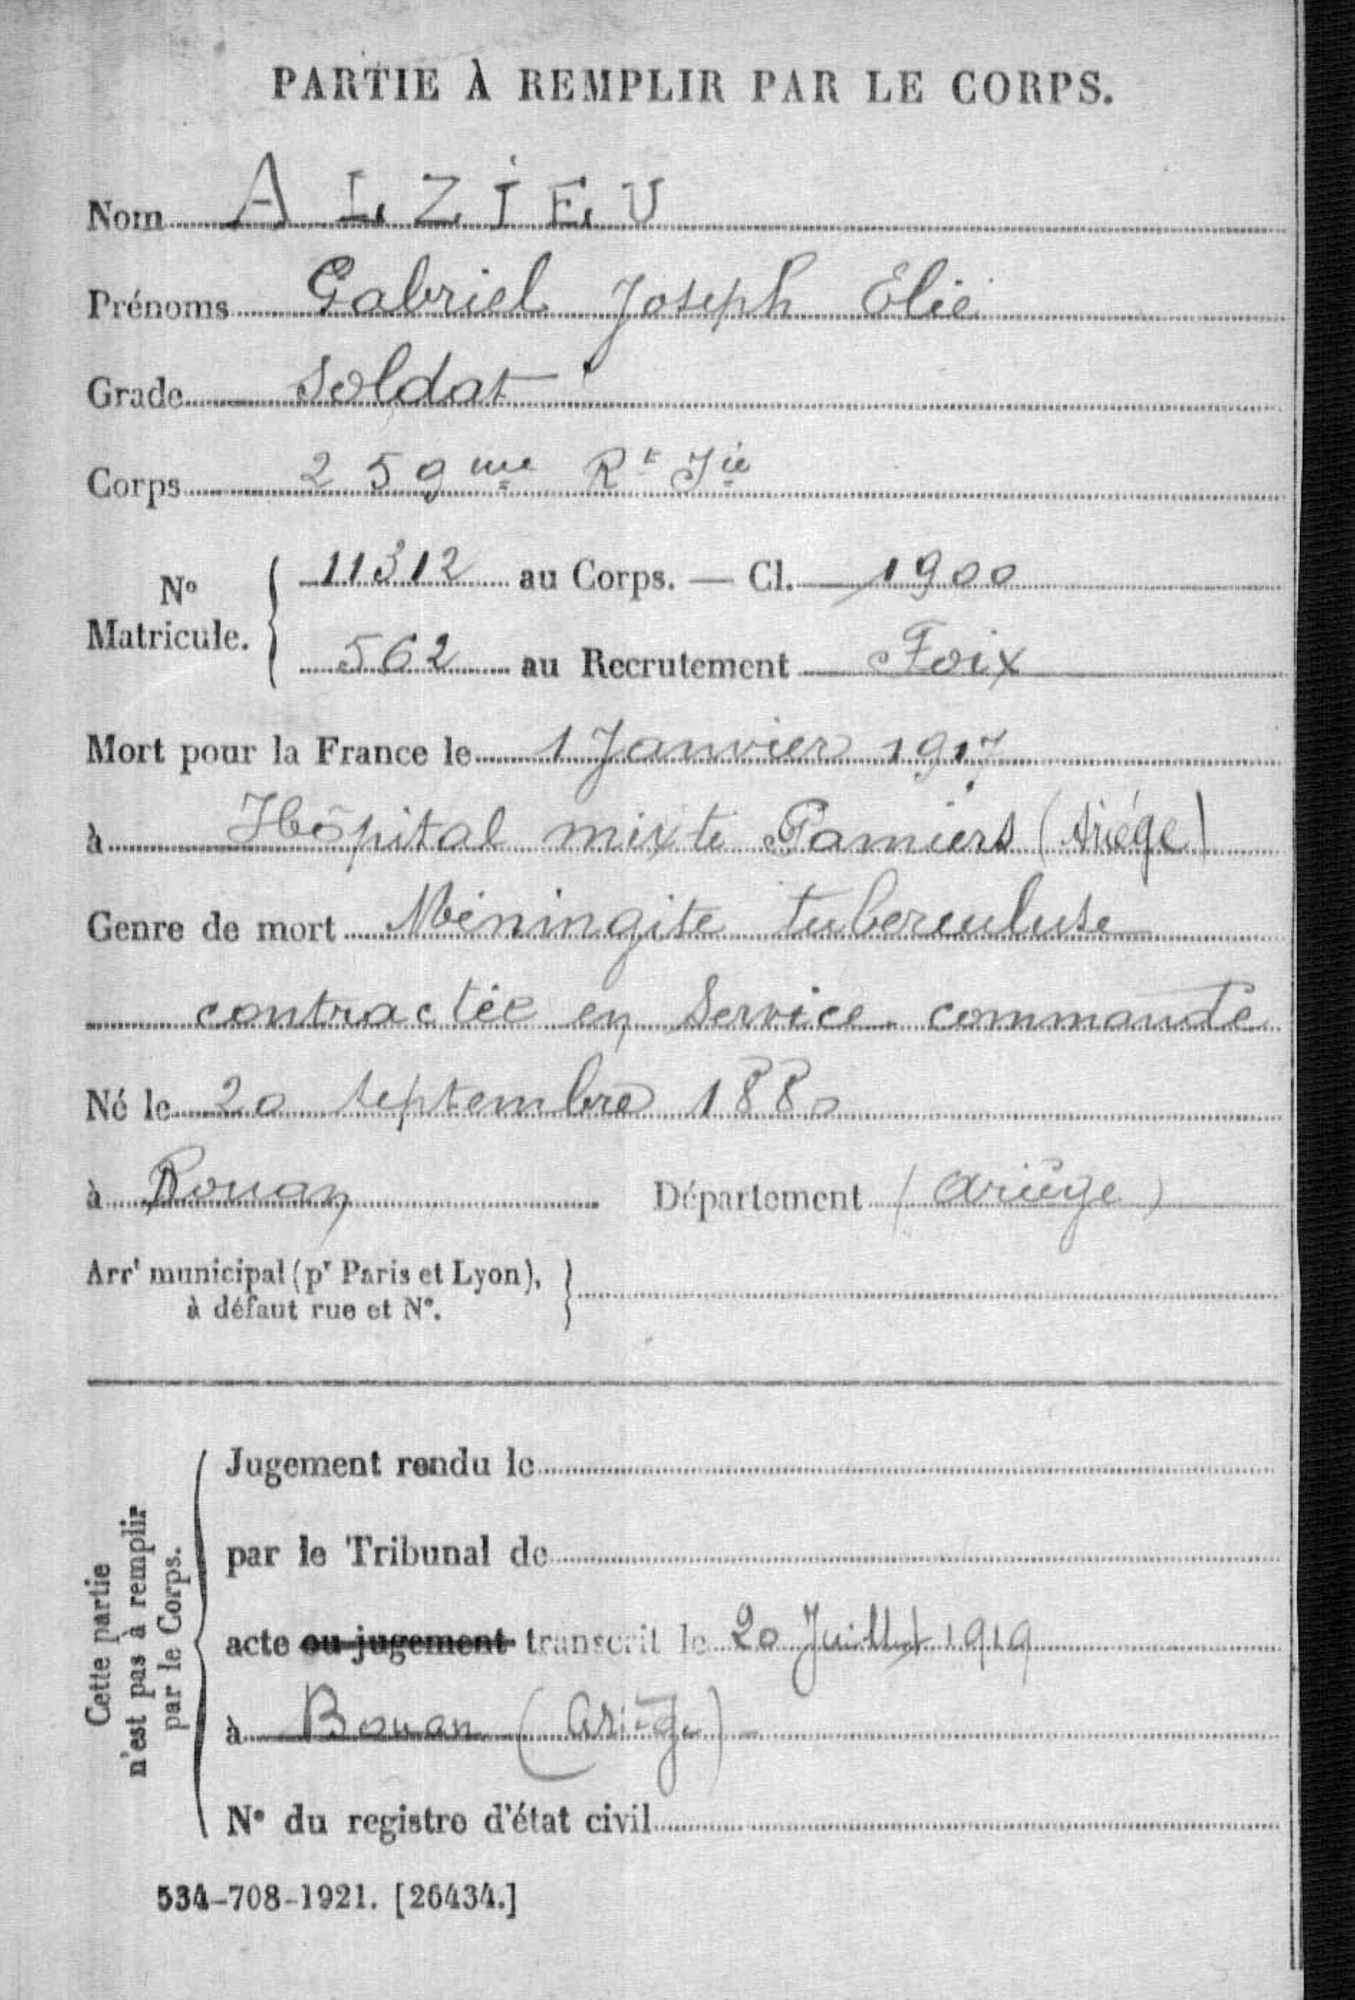 PARTIE À REMPLIR PAR LE CORPS.
Nom ALZIEU
Prénoms Gabriel Joseph Elie
Grade Soldat
Corps 259me Rt Iie
No Matricule. { 11312 au Corps. — Cl. 1900
562 au Recrutement Foix
Mort pour la France le 1 Janvier 1917
à Hôpital mixte Pamiers (Ariége)
Genre de mort Méningite tuberculuse
contractée en Service commandé
Né le 20 septembre 1880
à Bouan Département (Ariège)
Arrt municipal (pr Paris et Lyon), à défaut rue et No. }
Cette partie n'est pas à remplir par le Corps.
Jugement rendu le
par le Tribunal de
acte ou jugement transcrit le 20 Juillet 1919
à Bouan (Ariège)
No du registre d'état civil
534-708-1921. [26434.]